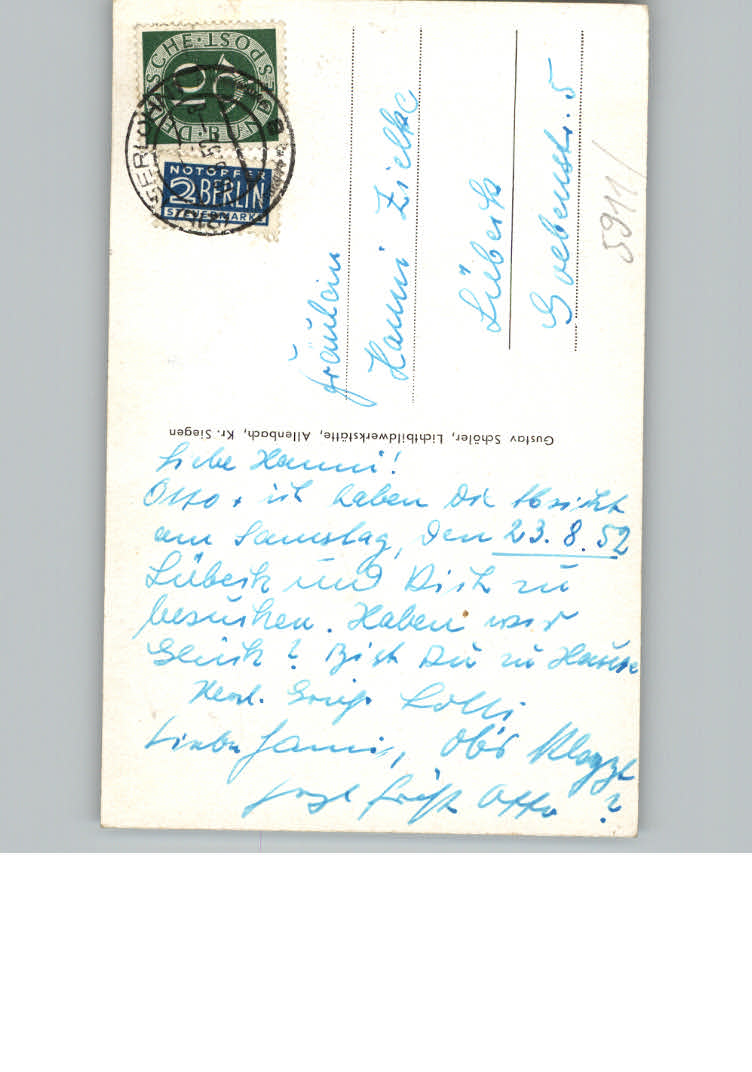 DEUTSCHE BUNDESPOST
10
NOTOPFER
2 BERLIN
STEUERMARKE
ISERLOHN
Fräulein
Hanni Zielke
Lübeck
Goebenstr. 5
5911/
Gustav Schäler, Lichtbildwerkstätte, Allenbach, Kr. Siegen
Liebe Hanni!
Otto + ich haben die Absicht
am Samstag, den 23. 8. 52
Lübeck und Dich zu
besuchen. Haben wir
Glück? Bist Du zu Hause
Herzl. Grüße Lolli
Liebe Hanni, ob's klappt
?
grüßt Otto